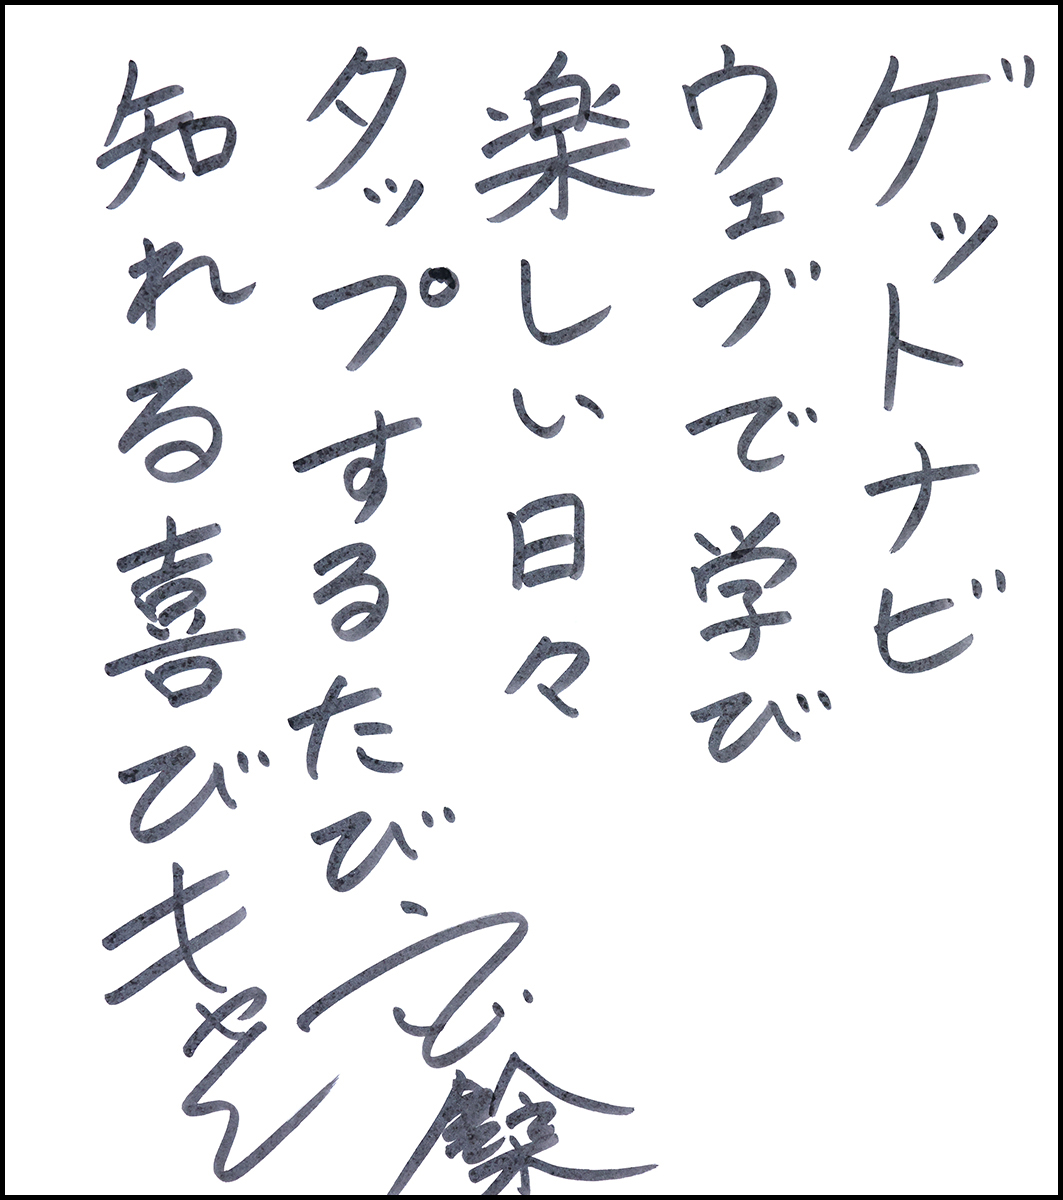 ゲットナビ
ウェブで学び
楽しい日々
タップするたび
知れる喜びキャン